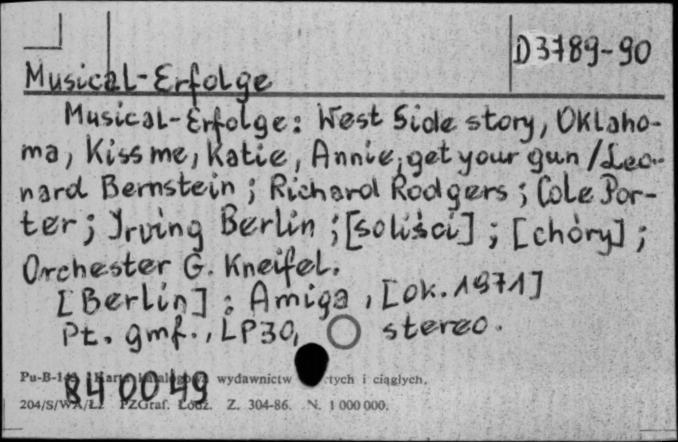 D3789-90
Musical-Erfolge
Musical-Erfolge: West Side story, Oklaho-
ma, Kiss me, Katie, Annie, get your gun / Leo-
nard Bernstein ; Richard Rodgers ; Cole Por-
ter ; Irving Berlin ; [soliści] ; [chóry] ;
Orchester G. Kneifel.
[Berlin] : Amiga, [ok. 1971]
Pt. gmf., LP30, stereo.
Pu-B-1 Karta katalogowa wydawnictw tych i ciągłych.
840049
204/S/WA/Ł2 PZGraf. Łódź. Z. 304-86. N. 1 000 000.